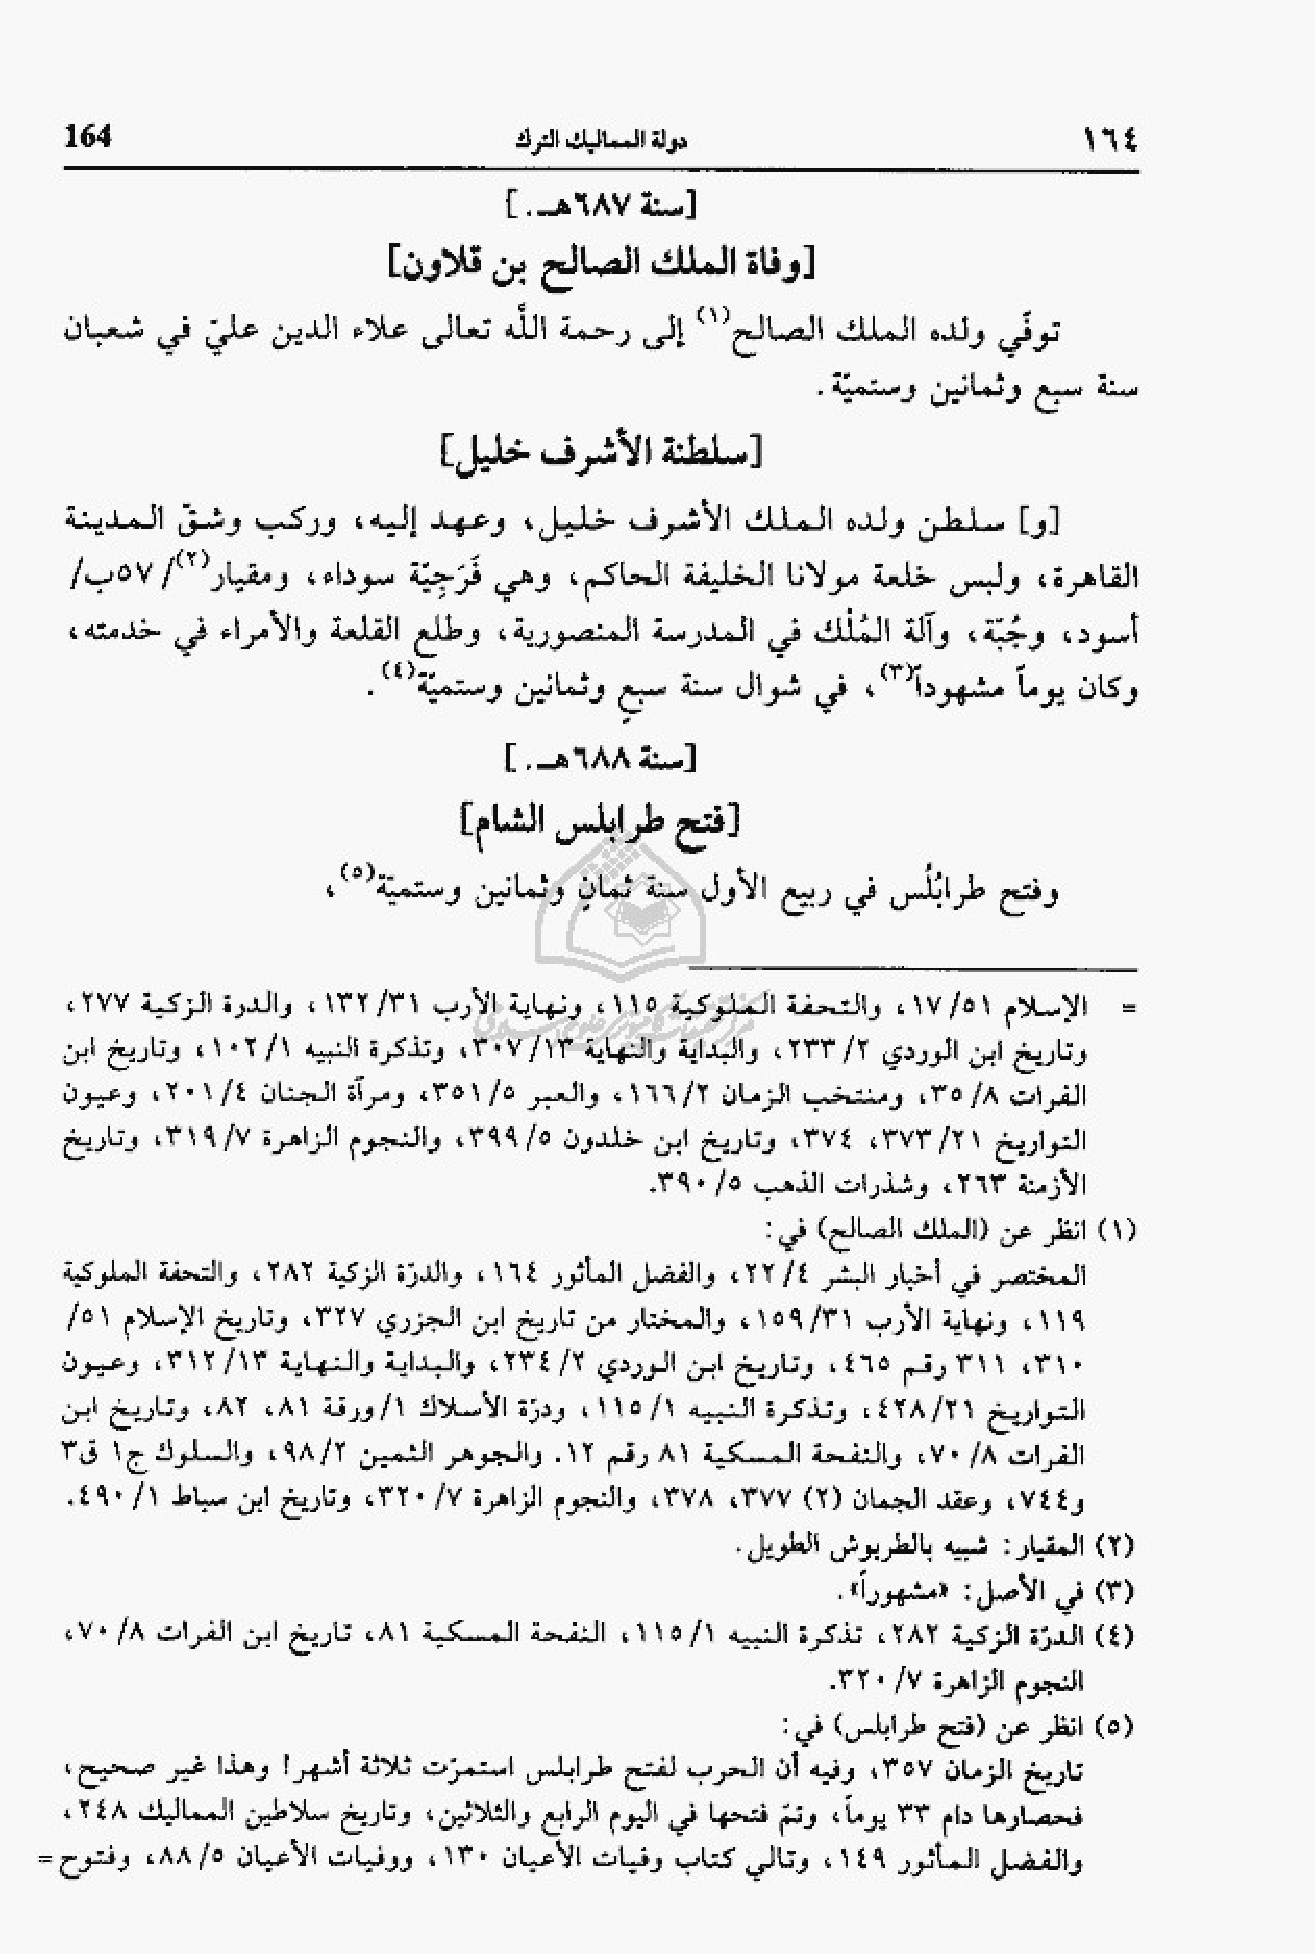 ١٦٤ دولة المماليك الترك 164
[سنة ٦٨٧هـ.]
[وفاة الملك الصالح بن قلاون]
توفّي ولده الملك الصالح(١) إلى رحمة اللَّه تعالى علاء الدين عليّ في شعبان
سنة سبع وثمانين وستميّة.
[سلطنة الأشرف خليل]
[و] سلطن ولده الملك الأشرف خليل، وعهد إليه، وركب وشقّ المدينة
القاهرة، ولبس خلعة مولانا الخليفة الحاكم، وهي فَرَجِيّة سوداء، ومقيار(٢)/ ٥٧ب/
أسود، وجُبّة، وآلة المُلْك في المدرسة المنصورية، وطلع القلعة والأمراء في خدمته،
وكان يوماً مشهوداً(٣)، في شوال سنة سبعٍ وثمانين وستميّة(٤).
[سنة ٦٨٨هـ.]
[فتح طرابلس الشام]
وفتح طرابُلُس في ربيع الأول سنة ثمانٍ وثمانين وستميّة(٥)،
= الإسلام ٥١/ ١٧، والتحفة الملوكية ١١٥، ونهاية الأرب ٣١/ ١٣٢، والدرة الزكية ٢٧٧،
وتاريخ ابن الوردي ٢/ ٢٣٣، والبداية والنهاية ١٣/ ٣٠٧، وتذكرة النبيه ١/ ١٠٢، وتاريخ ابن
الفرات ٨/ ٣٥، ومنتخب الزمان ٢/ ١٦٦، والعبر ٥/ ٣٥١، ومرآة الجنان ٤/ ٢٠١، وعيون
التواريخ ٢١/ ٣٧٣، ٣٧٤، وتاريخ ابن خلدون ٥/ ٣٩٩، والنجوم الزاهرة ٧/ ٣١٩، وتاريخ
الأزمنة ٢٦٣، وشذرات الذهب ٥/ ٣٩٠.
(١) انظر عن (الملك الصالح) في:
المختصر في أخبار البشر ٤/ ٢٢، والفضل المأثور ١٦٤، والدرّة الزكية ٢٨٢، والتحفة الملوكية
١١٩، ونهاية الأرب ٣١/ ١٥٩، والمختار من تاريخ ابن الجزري ٣٢٧، وتاريخ الإسلام ٥١/
٣١٠، ٣١١ رقم ٤٦٥، وتاريخ ابن الوردي ٢/ ٢٣٤، والبداية والنهاية ١٣/ ٣١٢، وعيون
التواريخ ٢١/ ٤٢٨، وتذكرة النبيه ١/ ١١٥، ودرّة الأسلاك ١/ ورقة ٨١، ٨٢، وتاريخ ابن
الفرات ٨/ ٧٠، والنفحة المسكية ٨١ رقم ١٢. والجوهر الثمين ٢/ ٩٨، والسلوك ج١ ق٣
و٧٤٤، وعقد الجمان (٢) ٣٧٧، ٣٧٨، والنجوم الزاهرة ٧/ ٣٢٠، وتاريخ ابن سباط ١/ ٤٩٠.
(٢) المقيار: شبيه بالطربوش الطويل.
(٣) في الأصل: «مشهوراً».
(٤) الدرّة الزكية ٢٨٢، تذكرة النبيه ١/ ١١٥، النفحة المسكية ٨١، تاريخ ابن الفرات ٨/ ٧٠،
النجوم الزاهرة ٧/ ٣٢٠.
(٥) انظر عن (فتح طرابلس) في:
تاريخ الزمان ٣٥٧، وفيه أن الحرب لفتح طرابلس استمرّت ثلاثة أشهر! وهذا غير صحيح،
فحصارها دام ٣٣ يوماً، وتمّ فتحها في اليوم الرابع والثلاثين، وتاريخ سلاطين المماليك ٢٤٨،
والفضل المأثور ١٤٩، وتالي كتاب وفيات الأعيان ١٣٠، ووفيات الأعيان ٥/ ٨٨، وفتوح =